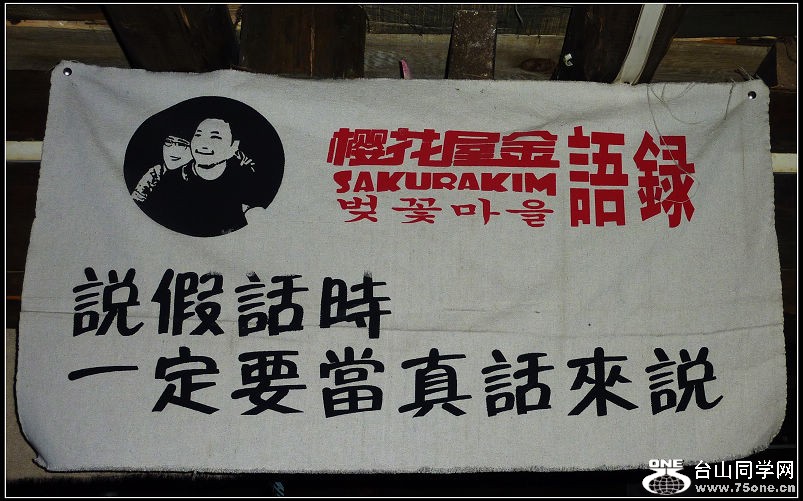 櫻花屋金語録
SAKURAKIM
벚꽃마을
説假話時
一定要當真話來説
ONE
台山同学网
www.75one.cn